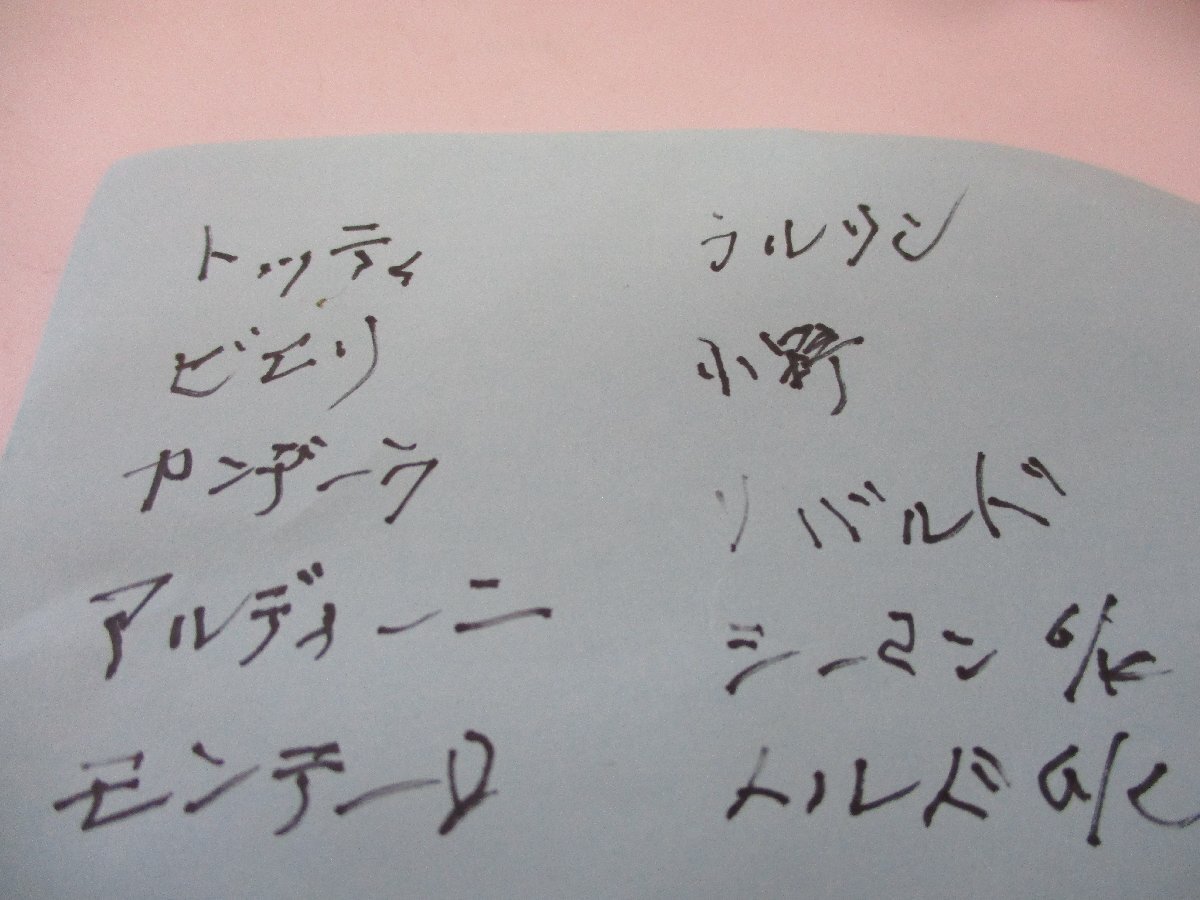 トッティ
ビエリ
カンデーラ
アルディーニ
モンテーロ
ラルソン
小野
リバルド
シーマン G/K
トルド G/K